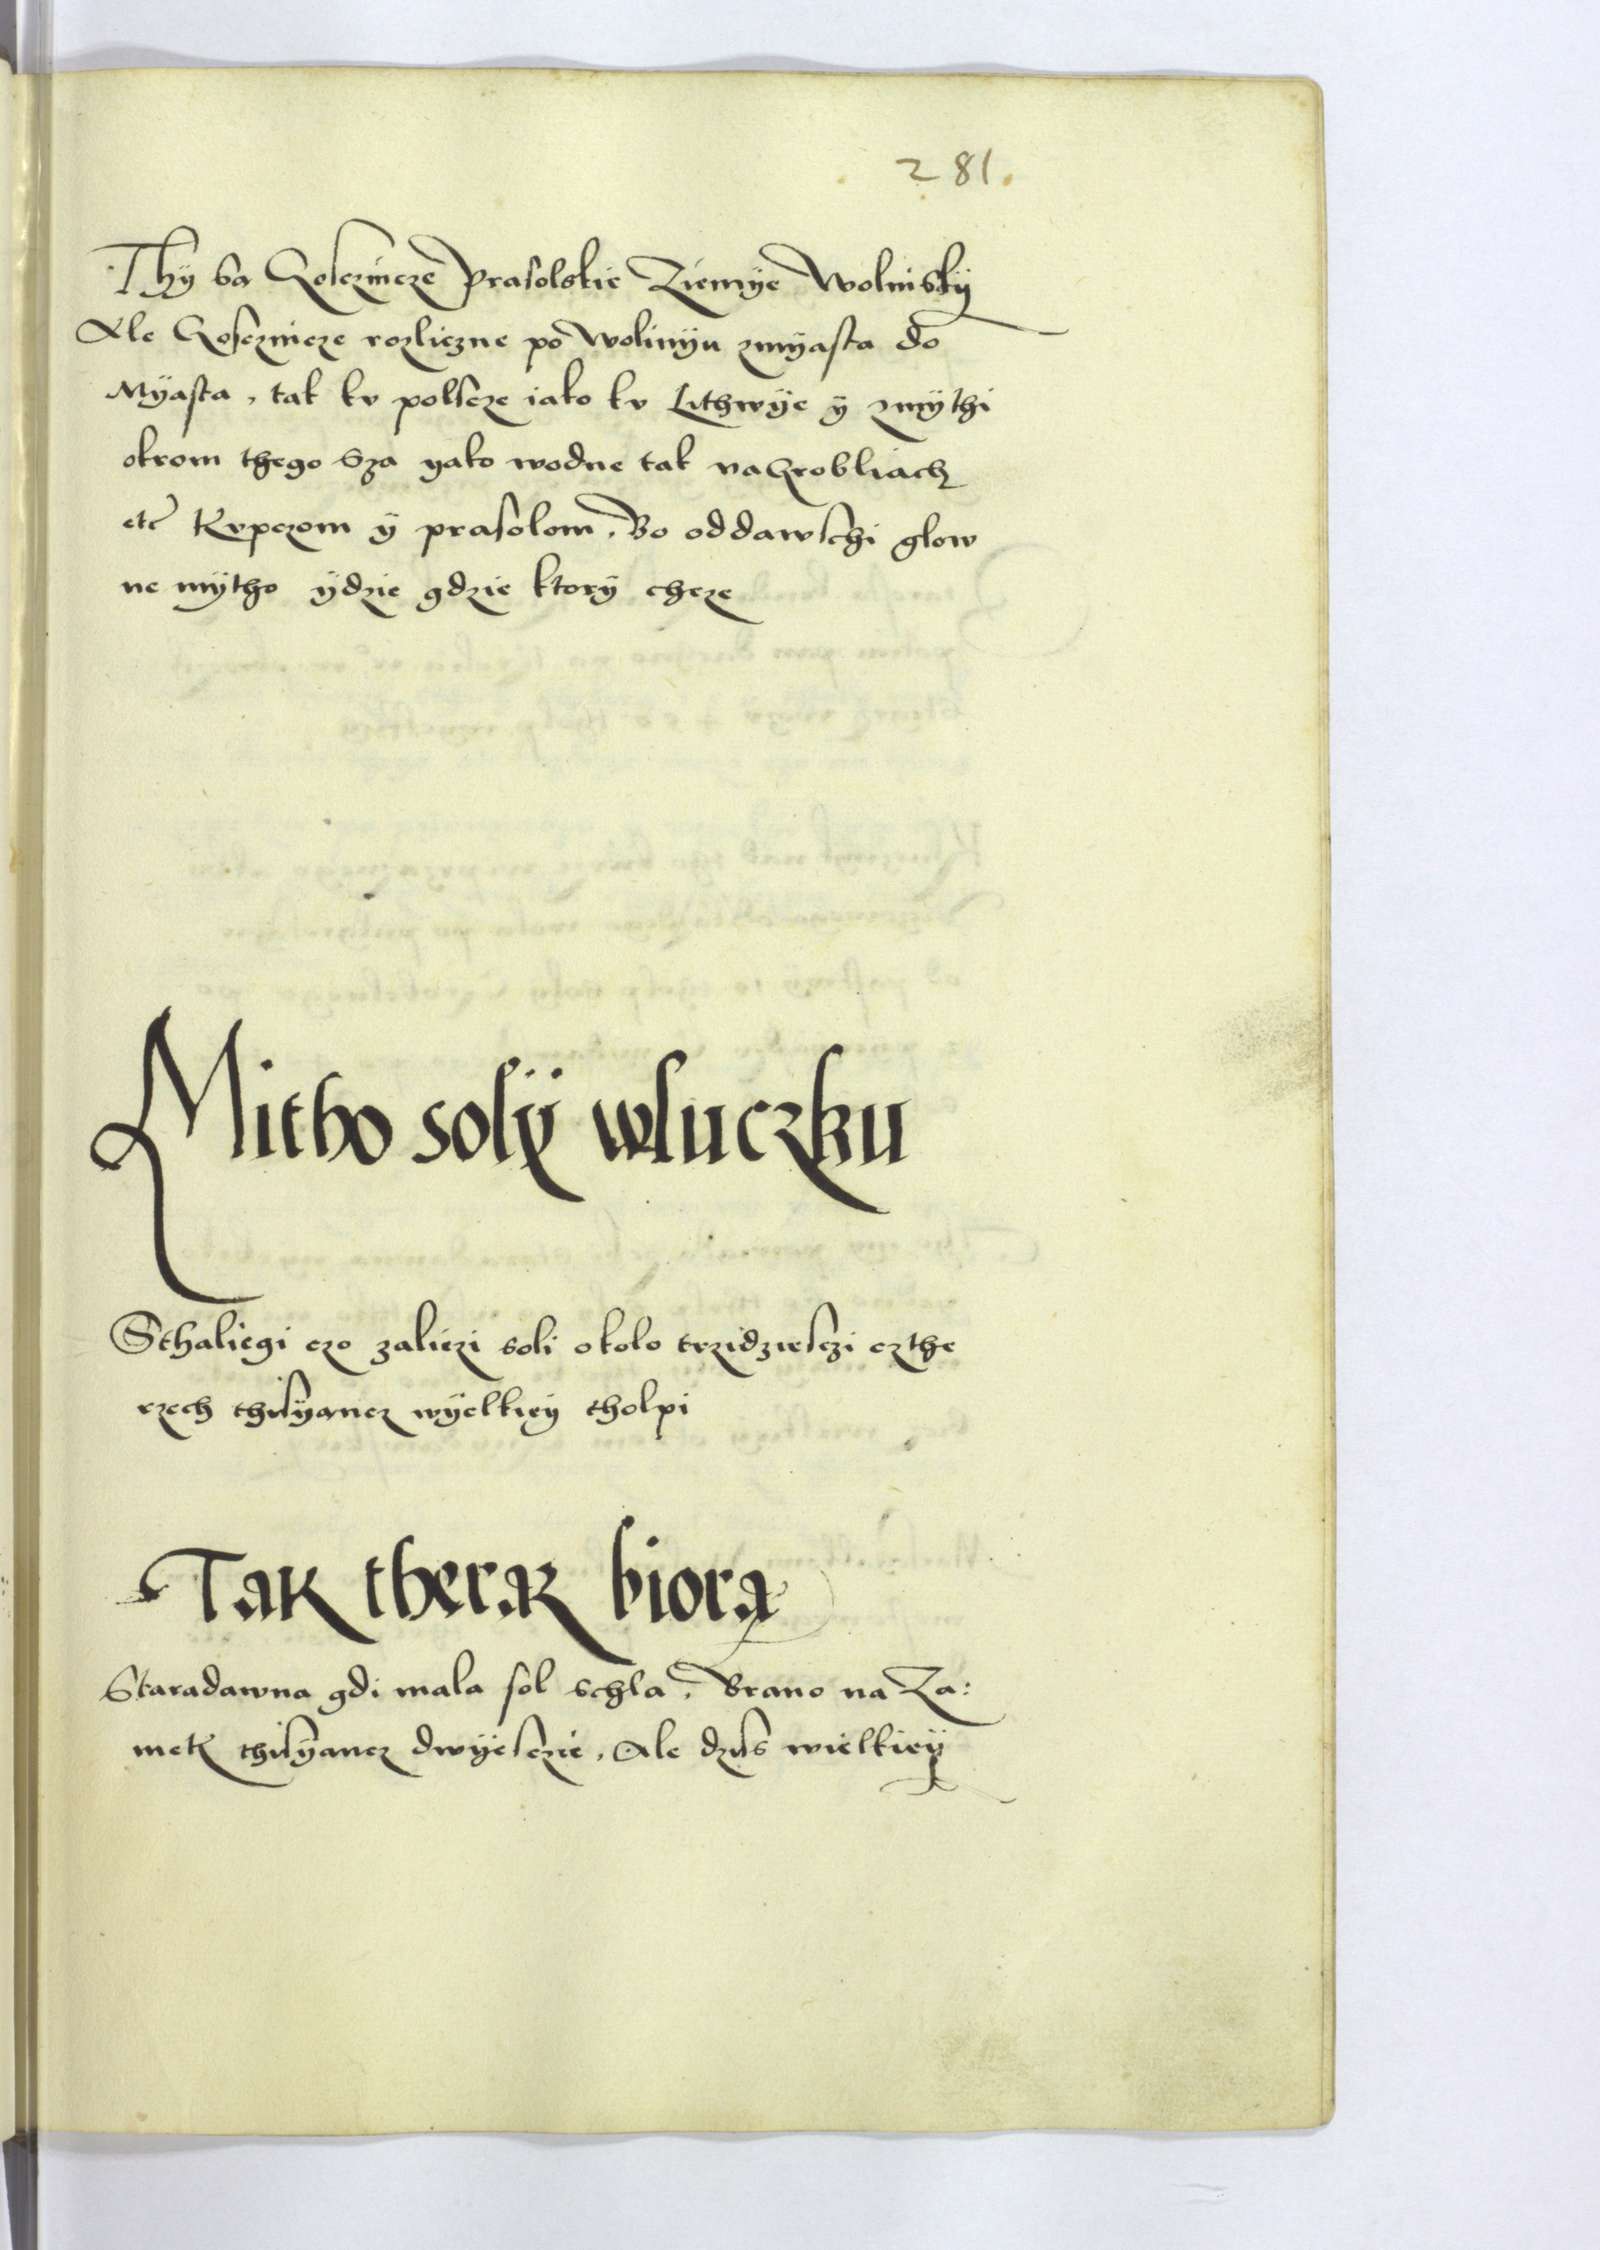 281.
Thÿ sa Gosczincze Prasolskie Ziemÿe Wolinskÿ
Ale Gosczincze rozliczne po Wolinÿu zmÿasta do
Mÿasta, tak kv polscze iako kv Lithwÿe ÿ zmÿthi
okrom thego Sza yako wodne tak na Grobliach
etc Kvpczom ÿ prasolom, Bo oddawschi glow
ne mÿtho ÿdzie gdzie ktorÿ chcze
Mitho solÿ wluczku
Sthaliegi czo zaliczi soli okolo trzidziesczi czthe
rzech thisÿancz wÿelkieÿ tholpi
Tak theraz biorą
Staradawna gdi mala sol schla, Brano na Za:
mek thisÿancz dwÿesczie, Ale dzis wielkieÿ